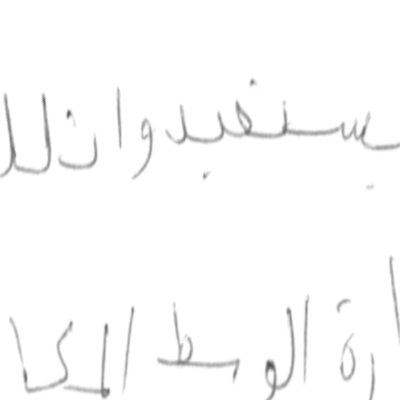 يستفيدوا نلل
ارة الوسط المكا